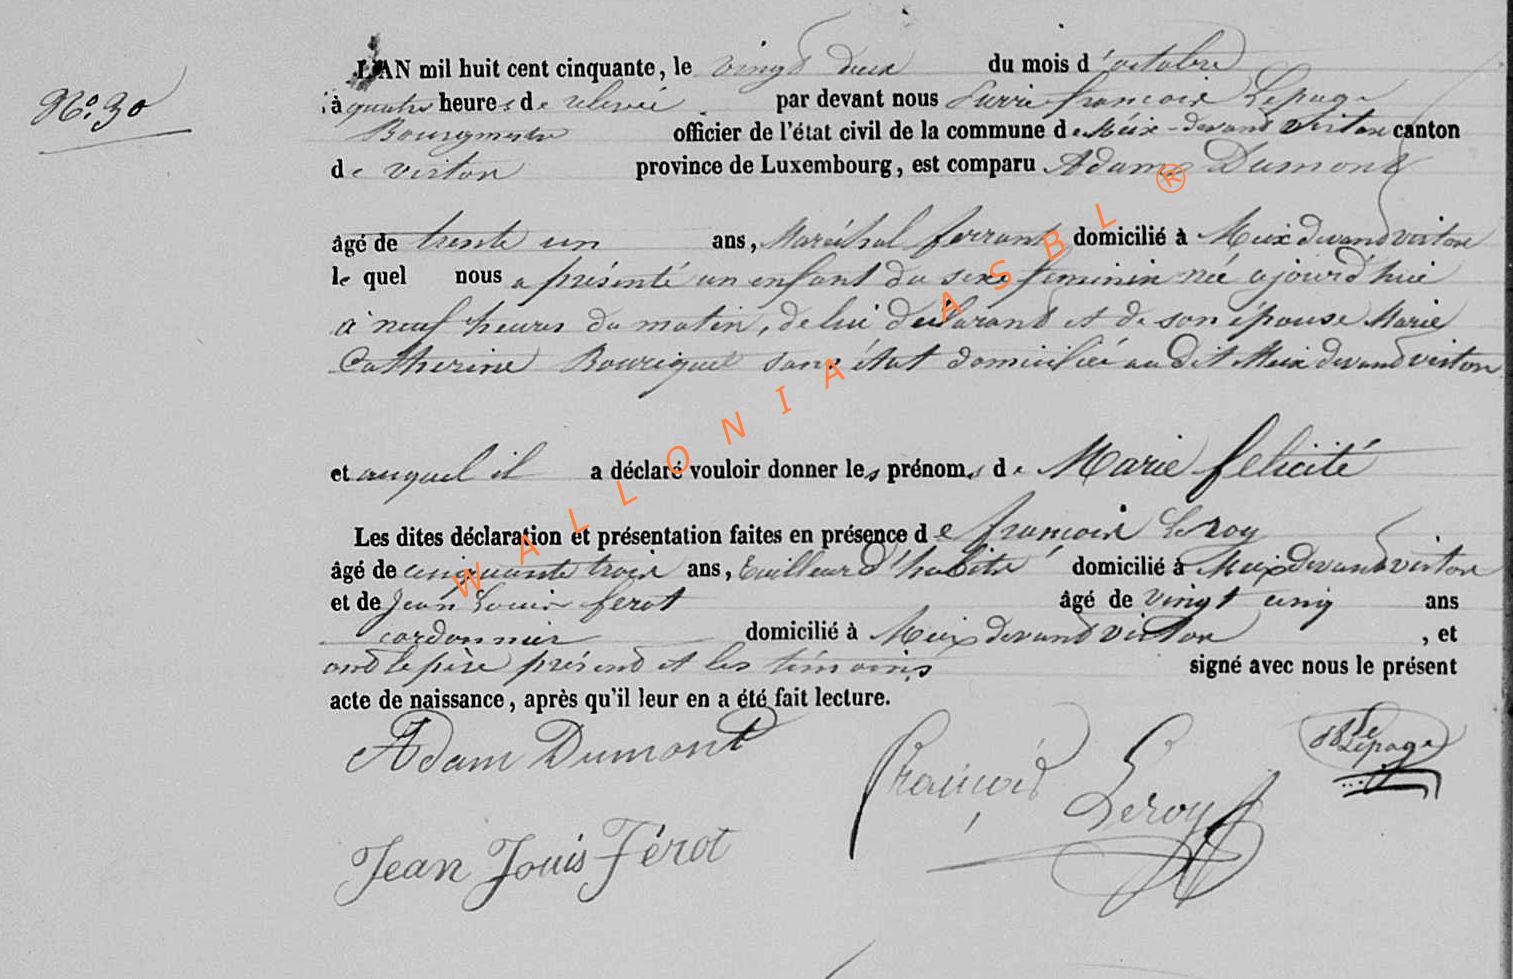 N° 30
L'AN mil huit cent cinquante, le vingt deux du mois d'octobre
à quatre heures de relevée par devant nous Pierre françois Lepage
Bourgmestre officier de l'état civil de la commune de Meix-devand virton canton
de virton province de Luxembourg, est comparu Adam Dumont
âgé de trente un ans, Maréchal ferrant domicilié à Meix devand virton
le quel nous a présenté un enfant du sexe feminin née ajourd'hui
à neuf heures du matin, de lui déclarand et de son épouse Marie
Catherine sans état domiciliée au dit Meix devand virton
et auquel il a déclaré vouloir donner les prénoms de Marie felicité
Les dites déclaration et présentation faites en présence de françois Leroy
âgé de cinquante trois ans, tailleur d'habits domicilié à Meix devand virton
et de Jean Louis ferot âgé de vingt cinq ans
cordonnier domicilié à Meix devand virton, et
ond le père présend et les témoins signé avec nous le présent
acte de naissance, après qu'il leur en a été fait lecture.
Adam Dumont
François Leroy
Lepage
Jean Louis Férot
WALLONIA ASBL ®